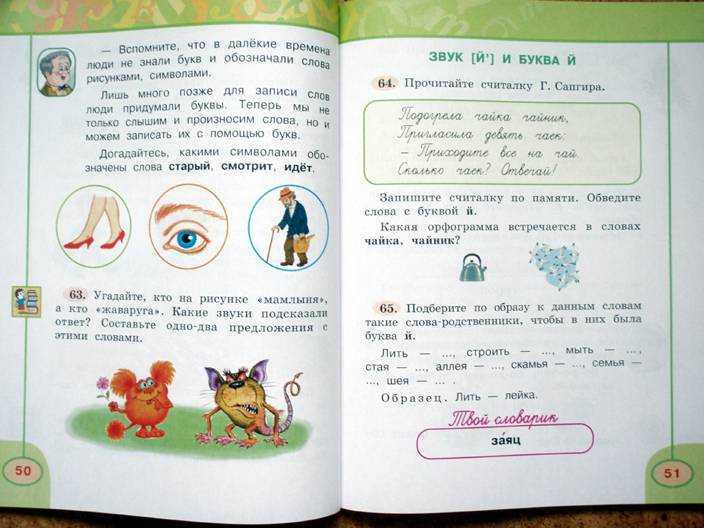 — Вспомните, что в далёкие времена
люди не знали букв и обозначали слова
рисунками, символами.
Лишь много позже для записи слов
люди придумали буквы. Теперь мы не
только слышим и произносим слова, но и
можем записать их с помощью букв.
Догадайтесь, какими символами обо-
значены слова старый, смотрит, идёт.
63. Угадайте, кто на рисунке «мамлыня»,
а кто «жаваруга». Какие звуки подсказали
ответ? Составьте одно-два предложения с
этими словами.
50
ЗВУК [Й'] И БУКВА Й
64. Прочитайте считалку Г. Сапгира.
Подогрела чайка чайник,
Пригласила девять чаек:
— Приходите все на чай.
Сколько чаек? Отвечай!
Запишите считалку по памяти. Обведите
слова с буквой й.
Какая орфограмма встречается в словах
чайка, чайник?
65. Подберите по образцу к данным словам
такие слова-родственники, чтобы в них была
буква й.
Лить — ..., строить — ..., мыть — ...,
стая — ..., аллея — ..., скамья — ..., семья —
..., шея — ... .
Образец. Лить — лейка.
Твой словарик
за́яц
51